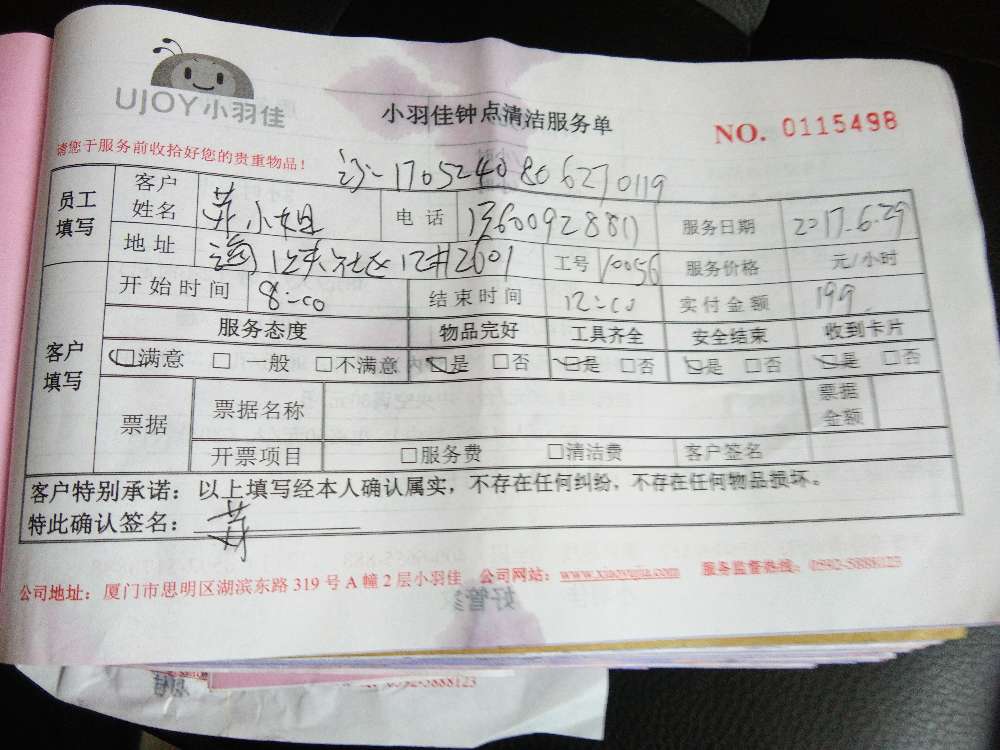 UJOY小羽佳
小羽佳钟点清洁服务单
NO. 0115498
请您于服务前收拾好您的贵重物品!
1705240806270119
员工填写 客户姓名 苏小姐 电话 服务日期 2017.6.29
地址 工号 10056 服务价格 元/小时
开始时间 8:00 结束时间 12:00 实付金额 199
客户填写 服务态度 物品完好 工具齐全 安全结束 收到卡片
□满意 □ 一般 □不满意 □是 □否 □是 □否 □是 □否 □是 □否
票据 票据名称 票据金额
开票项目 □服务费 □清洁费 客户签名
客户特别承诺：以上填写经本人确认属实，不存在任何纠纷，不存在任何物品损坏。
特此确认签名：苏
公司地址：厦门市思明区湖滨东路 319 号 A 幢 2 层小羽佳 公司网站：www.xiaoyujia.com 服务监督热线：0592-5888123
0592-5888123